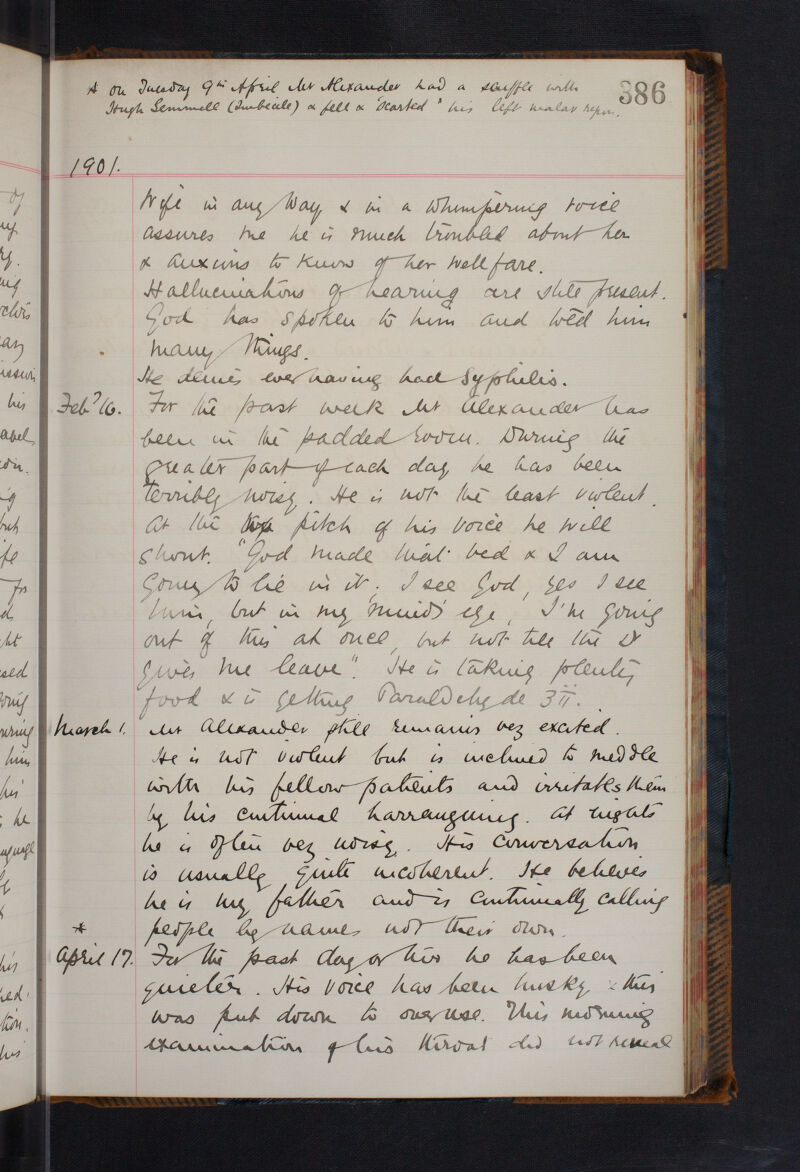 * on Tuesday 9th April Mr Alexander had a scuffle with
Hugh Gemmell (Imbecile) & fell & "scarted" his left malar region.
386
1901.
Wife in any way & in a whimpering voice
assures me he is much troubled about her
& anxious to know of her wellfare.
Hallucinations of hearing are still present.
God has spoken to him and told him
many things.
He denies ever having had Syphilis.
Feby 16. For the past week Mr Alexander has
been in the padded room. During the
greater part of each day he has been
terribly noisy. He is not the least violent.
At the top pitch of his voice he will
shout. "God made that bed & I am
going to lie in it, I see God, yes I see
him, but in my mind's eye, I'm going
out of this at once, but not till the Dr
gives me leave". He is taking plenty
food & is getting Paraldehyde ʒii.
March 1. Mr Alexander still remains very excited.
He is not violent but is inclined to meddle
with his fellow patients and irritates them
by his continual harranguing. At nights
he is often very noisy. His conversation
is usually quite incoherent. He believes
he is my father and is continually calling
people by names not their own.
*
April 17. For the past day or two he has been
quieter. His voice has been husky & this
was put down to overuse. This morning
examination of his throat did not reveal